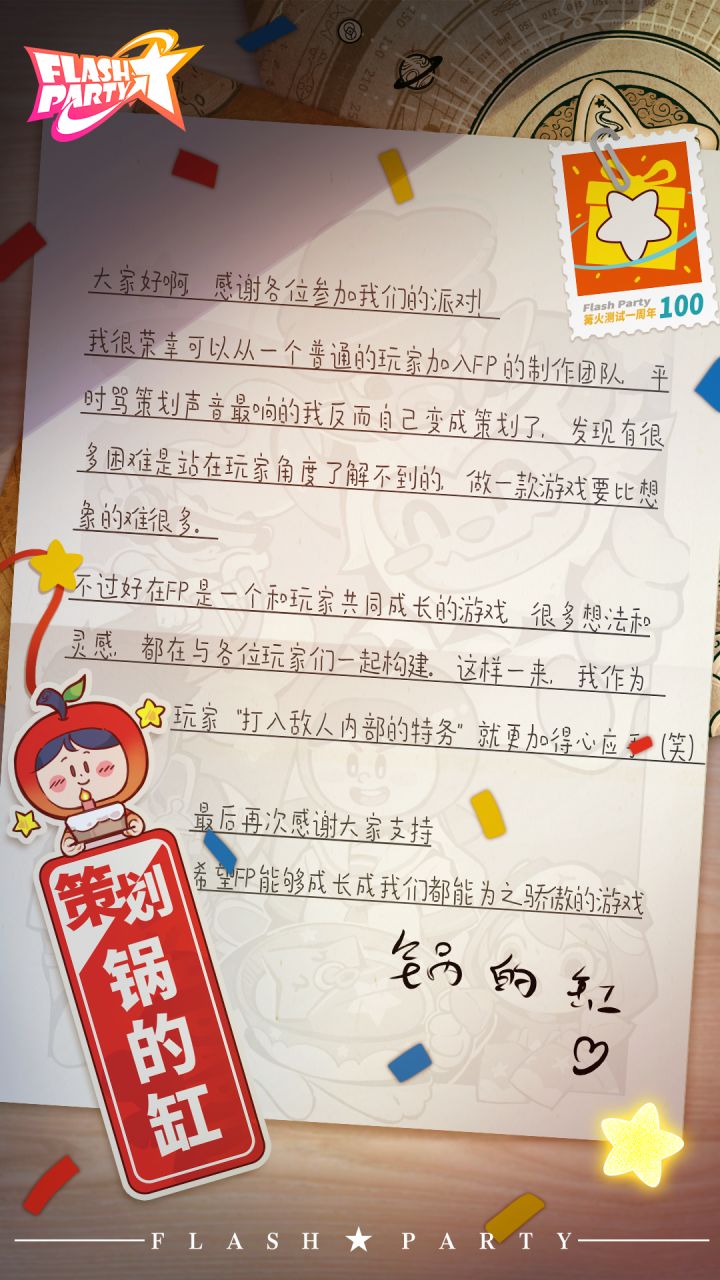 FLASH
PARTY
Flash Party
篝火测试一周年 100
大家好啊，感谢各位参加我们的派对！
我很荣幸可以从一个普通的玩家加入FP的制作团队，平
时骂策划声音最响的我反而自己变成策划了，发现有很
多困难是站在玩家角度了解不到的，做一款游戏要比想
象的难很多。
不过好在FP是一个和玩家共同成长的游戏，很多想法和
灵感，都在与各位玩家们一起构建。这样一来，我作为
玩家“打入敌人内部的特务”就更加得心应手（笑）
最后再次感谢大家支持
希望FP能够成长成我们都能为之骄傲的游戏
锅的缸
策划
锅的缸
FLASH★PARTY